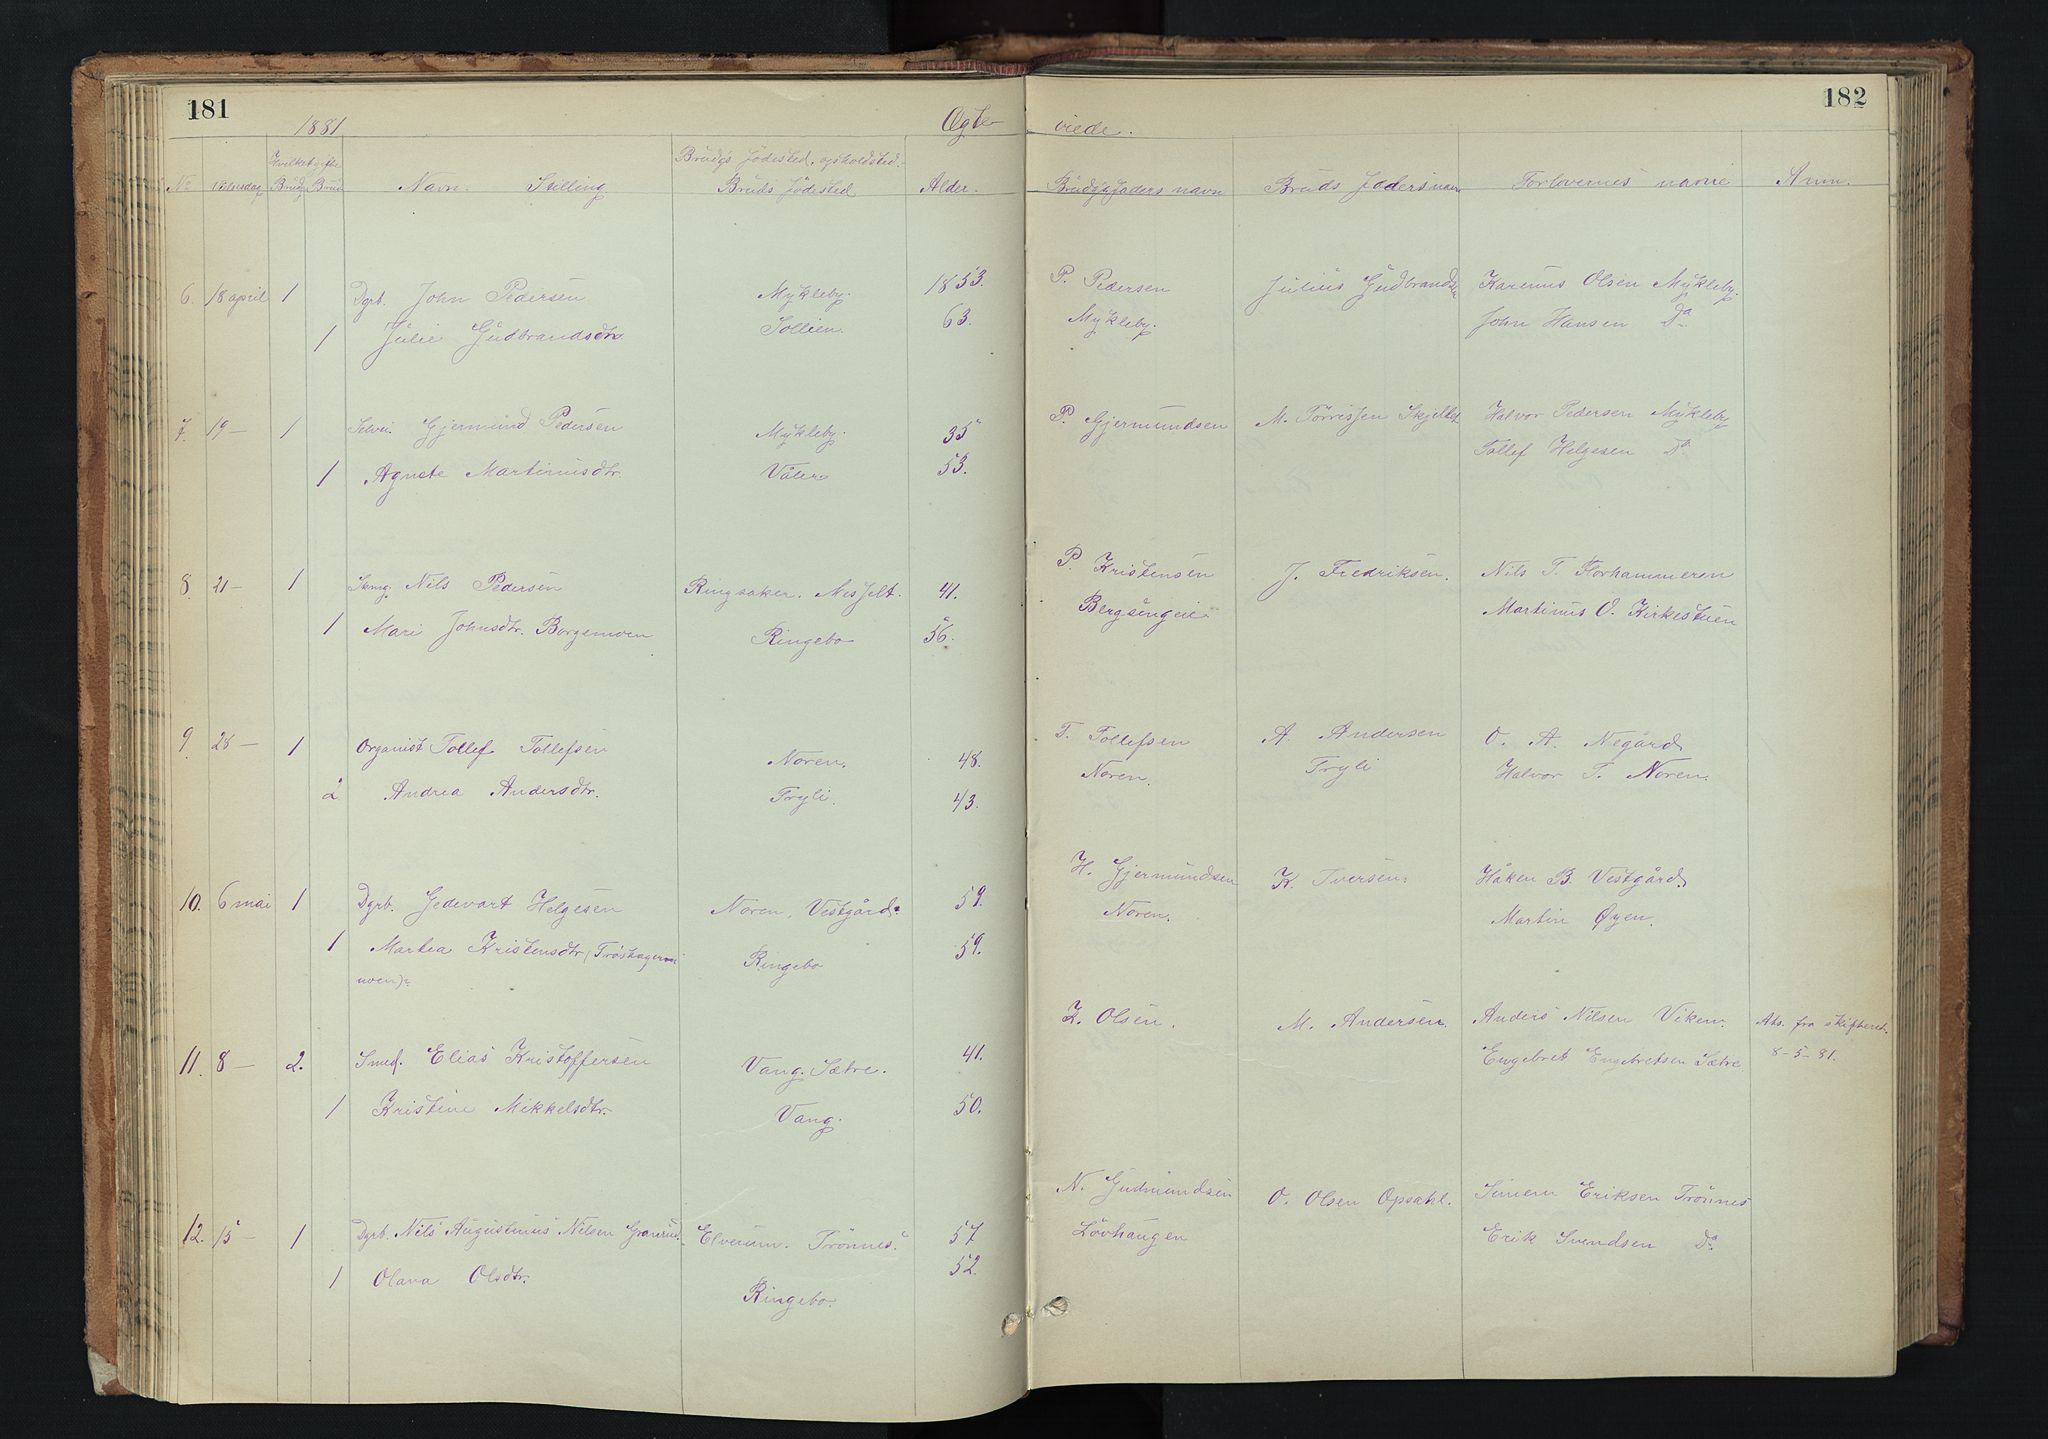 181
1881
Ægte
viede.
182
Hvilket gifte
Brudgs fødested, opholdsted.
No Vielsesdag Brudg Brud Navn. Stilling Bruds fødested Alder. Brudgs faders navn Bruds faders navn Forlovernes navne Anm.
6. 18 april 1 Dgrb. John Pedersen Mykleby. 1853. P. Pedersen Julius Gudbrandsen Karenus Olsen Mykleby.
1 Julie Gudbrandsdtr. Sollien. 63. Mykleby. John Hansen Do
7. 19 — 1 Selvei. Gjermund Pedersen Mykleby. 35 P. Gjermundsen M. Torrissen Halvor Pedersen Mykleby
1 Agnete Martinusdtr. Våler 53. Tollef Helgesen Do
8 21 — 1 Nils Pedersen Ringsaker. Mesfelt. 41. P. Kristensen J. Fredriksen. Nils T. Storhammeren
1 Mari Johnsdtr. Borgemoen Ringebo 56. Bergsengeie Martinus O. Kirkestuen
9 28 — 1 Organist Tollef Tollefsen Noren. 48. T. Tollefsen A Andersen O. A. Negård
2 Andrea Andersdtr. Tryli. 43. Noren. Tryli Halvor T. Noren.
10. 6 mai 1 Dgrb. Gedevart Helgesen Noren, Vestgård. 59. H. Gjermundsen K. Iversen. Håken B. Vestgård.
1 Martea Kristensdtr. Ringebo 59. Noren. Martin Øyen.
moen).
11. 8 — 2. Smed. Elias Kristoffersen Vang. Sætre. 41. K. Olsen. M. Andersen. Anders Nilsen Viken. Ats. fra skifteret.
1 Kristine Mikkelsdtr. Vang. 50. Engebret Engebretsen Sætre. 8-5-81.
12. 15 — 1 Dgrb. Nils Augustinus Nilsen Granrud. Elverum. Trönnes. 57 N. Gudmundsen O. Olsen Opsahl. Simen Eriksen Trönnes
1 Olava Olsdtr. Ringebo. 52. Lövhaugen Erik Svendsen Do